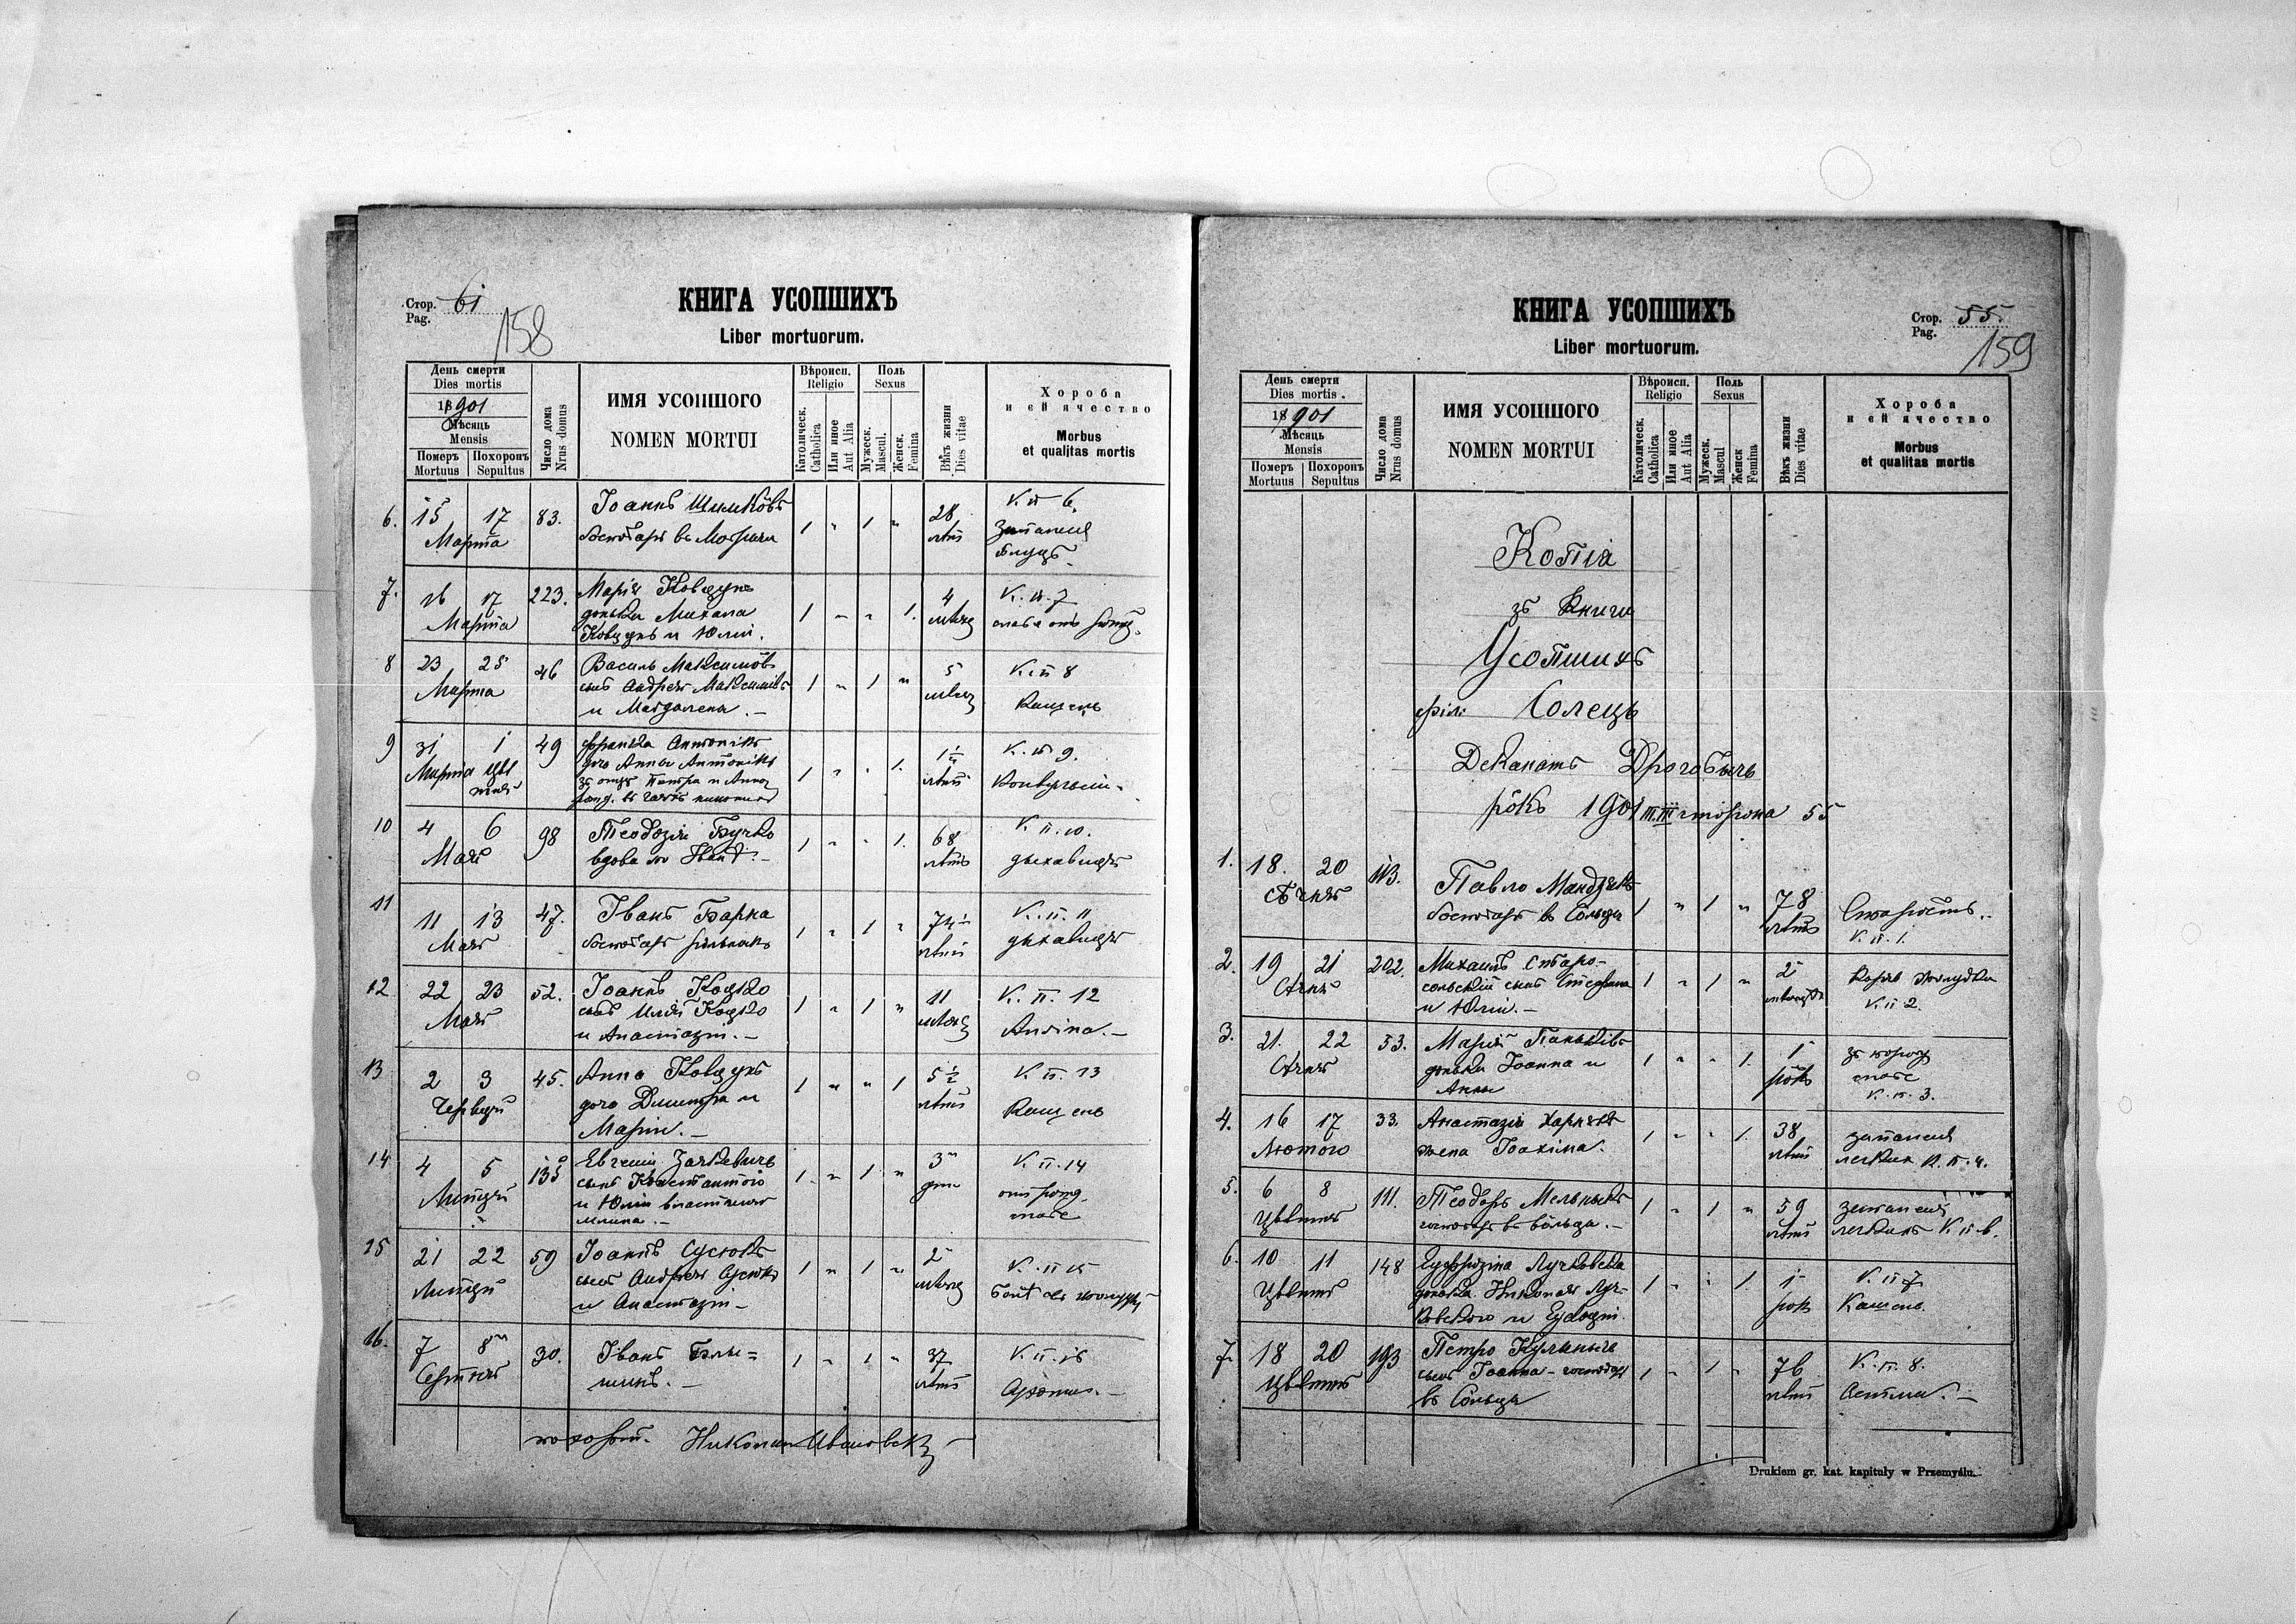 Стор. 61
Pag.
158
КНИГА УСОПШИХЪ
Liber mortuorum.
День смерти
Dies mortis
1901
Мѣсяць
Mensis
Померъ Похоронъ
Mortuus Sepultus
Число дома
Nrus domus
ИМЯ УСОПШОГО
NOMEN MORTUI
Вѣроисп.
Religio
Католическ.
Catholica
Или иное
Aut Alia
Поль
Sexus
Мужеск.
Mascul.
Женск.
Femina
Вѣкъ жизни
Dies vitae
Хороба
и ей ячество
Morbus
et qualitas mortis
6. 15 17 83. Іоаннъ 1 " 1 " 28 К. II 6.
Марта господарь въ лѣтъ запаленя
7. 16 17 223. Марія 1 " " 1. 4 К. II. 7
Марта донька Михаила мѣсяц
и Юлiи.
8 23 25 46 Василь Максимôвъ 1 " 1 " 5 К. II 8
Марта сынъ Андрея Максимôвъ мѣсяц Кашель
и Магдалена. –
9 31 1 49 Франка Антонікъ 1 " " 1. К. II 9.
Марта дочь Анны Антонікъ лѣтъ
Петра и Анна
10 4 6 98 Теодозія Бучко 1 " " 1. 68 К. II. 10.
Мая вдова по лѣтъ дыхавиця
11 11 13 47. Іванъ Барна 1 " 1 " К. II. 11
Мая господарь рôльникъ лѣтъ дыхавиця
12 22 23 52. Іоаннъ Коцко 1 " 1 " 11 К. II. 12
Мая сынъ Илiи Коцко мѣсяц Ангіна. –
и Анастазiи. –
13 2 3 45. Анна 1 " " 1 5½ К. II. 13
Червця дочь Димитра и лѣтъ Кашель
Марiи. –
14 4 5 135 Евгеній 1 " 1 " 3 К. II. 14
Липця сынъ Константого дни
и Юлiи
млина. –
15 21 22 59 Іоаннъ Сусюкъ 1 " 1 " 2 К. II 15
Липця сынъ Андрея Сусюкъ мѣсяц
и Анастазiи –
16. 7 8 30. Іванъ 1 " 1 " 37 К. II. 16
Серпня лѣтъ Сухоты. –
похорон. Николай
КНИГА УСОПШИХЪ
Liber mortuorum.
Стор. 55.
Pag.
159
День смерти
Dies mortis.
1901
Мѣсяць
Mensis
Померъ Похоронъ
Mortuus Sepultus
Число дома
Nrus domus
ИМЯ УСОПШОГО
NOMEN MORTUI
Вѣроисп.
Religio
Католическ.
Catholica
Или иное
Aut Alia
Поль
Sexus
Мужеск.
Mascul
Женск
Femina
Вѣкъ жизни
Dies vitae
Хороба
и ей ячество
Morbus
et qualitas mortis
Копія
зъ Книги
Усопшихъ
філ: Солець
Деканатъ Дрогобычь
рôкъ 1901 III сторона 55
1. 18. 20 113. Павло Мандзякъ 1 " 1 " 78 Старость.
Сѣчня господарь въ Сольци лѣтъ К. II. 1.
2. 19 21 202. Михаилъ Старо- 1 " 1 " 2
Сѣчня сольскій сынъ Стефана К. II 2.
и Юлiи. –
3. 21. 22 53. Марія Паньківъ 1 " " 1. 1
Сѣчня донька Іоанна и рôкъ
Анны К. II. 3.
4. 16 17 33. Анастазія 1 " " 1. 38 запаленя
Лютого жена Іоахіма. лѣтъ легкихъ К. II. 4.
5. 6 8 111. Теодоръ Мельникъ 1 " 1 " 59 запаленя
Цвѣтня господарь въ Сôльци. – лѣтъ легкихъ К. II 6.
6. 10 11 148 Еуфрозіна Лучковска 1 " " 1. 1 К. II 7
Цвѣтня донька Николая Луч- рôкъ Кашель.
ковского и Еудокiи.
7. 18 20 193 Петро Кулиничь 1 " 1 " 76 К. II. 8.
Цвѣтня сынъ Іоанна – господарь лѣтъ Астма. –
въ Сôльци
Drukiem gr. kat. kapituły w Przemyślu.